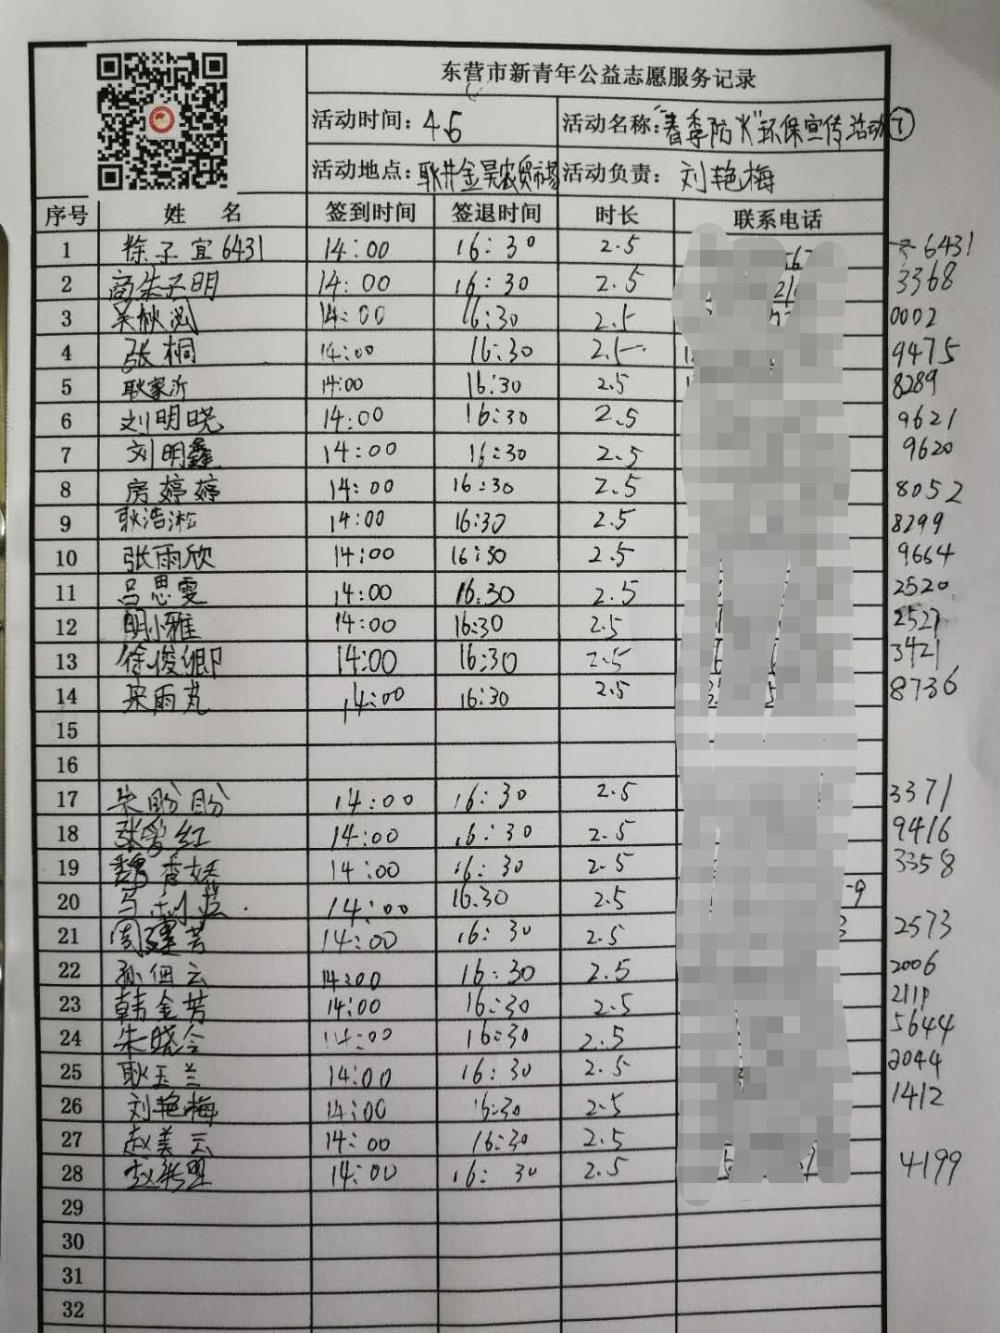 东营市新青年公益志愿服务记录
活动时间：4.5 活动名称："春季防火"环保宣传活动 ①
活动地点：耿井金昊农贸市场 活动负责：刘艳梅
序号 姓名 签到时间 签退时间 时长 联系电话
1 徐子宜6431 14:00 16:30 2.5 6431
2 商朱子明 14:00 16:30 2.5 3368
3 14:00 16:30 2.5 0002
4 张桐 14:00 16:30 2.5 9475
5 耿家沂 14:00 16:30 2.5 8289
6 刘明晓 14:00 16:30 2.5 9621
7 刘明鑫 14:00 16:30 2.5 9620
8 房婷婷 14:00 16:30 2.5 8052
9 耿浩淞 14:00 16:30 2.5 8299
10 张雨欣 14:00 16:30 2.5 9664
11 吕思雯 14:00 16:30 2.5 2520
12 胡小雅 14:00 16:30 2.5 2521
13 徐俊卿 14:00 16:30 2.5 3421
14 14:00 16:30 2.5 8736
15
16
17 朱盼盼 14:00 16:30 2.5 3371
18 张爱红 14:00 16:30 2.5 9416
19 魏香娇 14:00 16:30 2.5 3358
20 14:00 16.30 2.5 9
21 14:00 16:30 2.5 2573
22 孙佃云 14:00 16:30 2.5 2006
23 韩金芳 14:00 16:30 2.5
24 朱晓令 14:00 16:30 2.5 5644
25 耿玉兰 14:00 16:30 2.5 2044
26 刘艳梅 14:00 16:30 2.5 1412
27 赵美云 14:00 16:30 2.5
28 14:00 16:30 2.5 4199
29
30
31
32